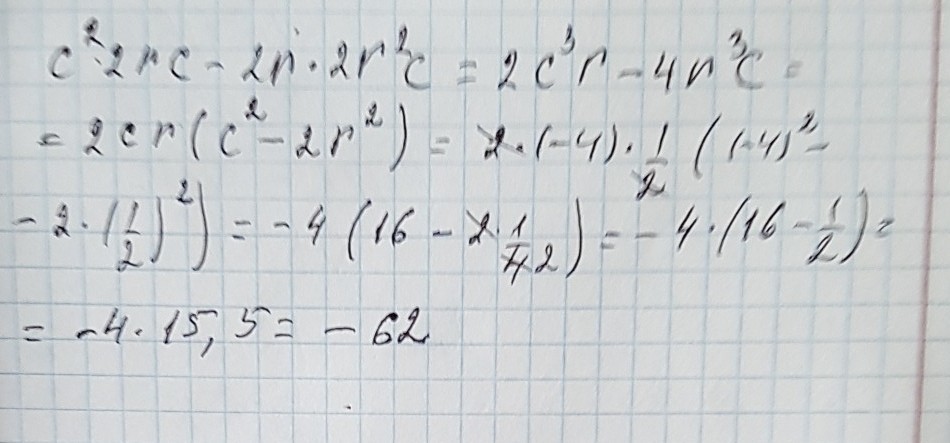 c²·2rc - 2r·2r²c = 2c³r - 4r³c =
= 2cr(c² - 2r²) = 2·(-4)·1/2 ((-4)² -
- 2·(1/2)²) = -4(16 - 2·1/4 2) = -4·(16 - 1/2) =
= -4·15,5 = -62